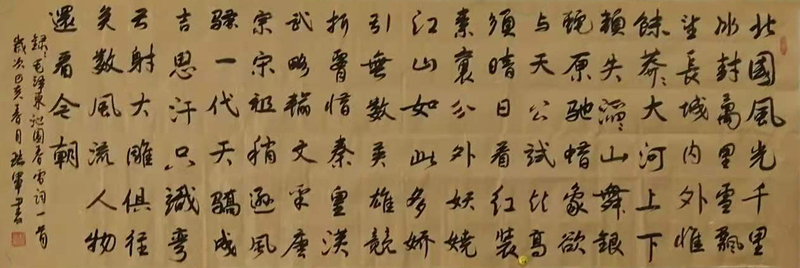 北国風光千里
冰封萬里雪飄
望長城内外惟
餘莽〻大河上下
頓失滔〻山舞銀
蛇原馳蜡象欲
与天公試比高
須晴日看红装
素裹分外妖娆
江山如此多娇
引無数英雄競
折腰惜秦皇漢
武略輸文采唐
宗宋祖稍遜風
骚一代天驕成
吉思汗只識彎
弓射大雕俱往
矣数風流人物
還看今朝
錄毛澤東沁园春雪詞一首
歲次己亥春月